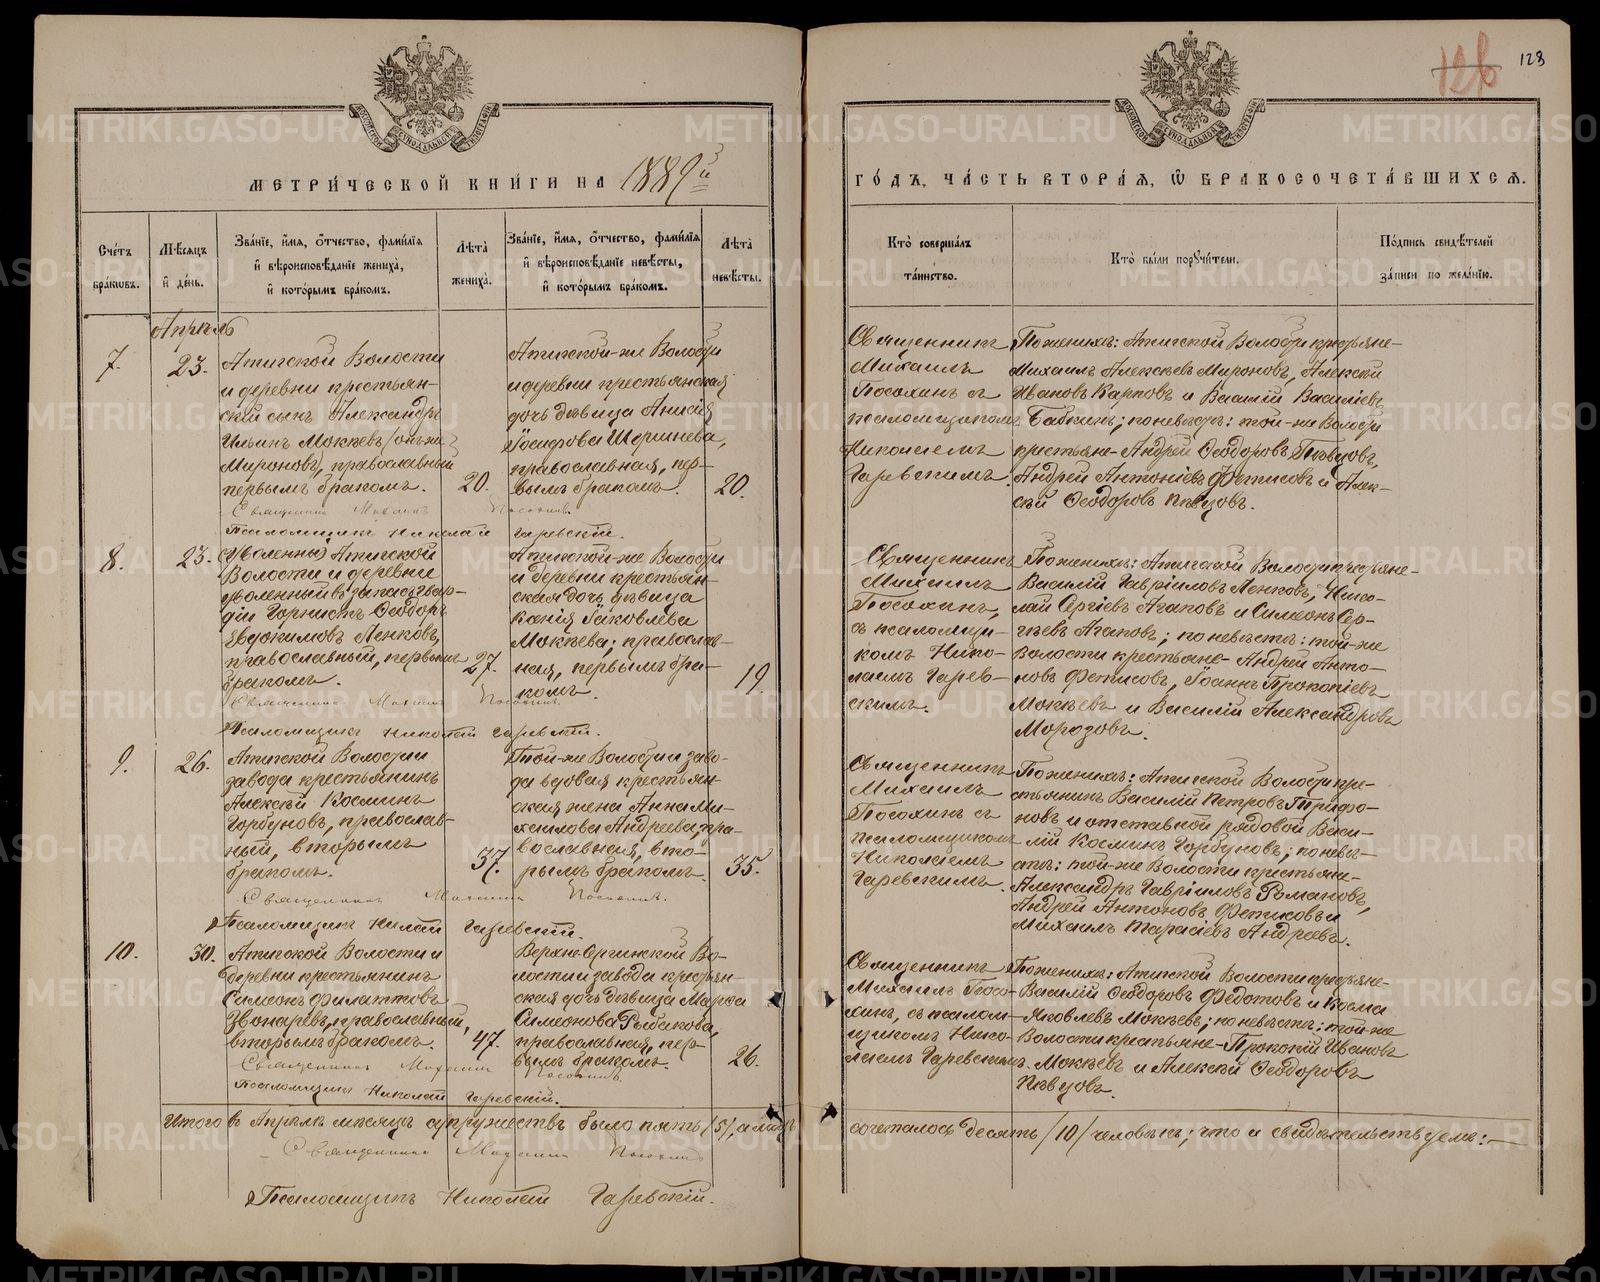 128
МЕТРИ́ЧЕСКОЙ КНИ́ГИ НА 1889й
ГО́ДЪ, ЧА́СТЬ ВТОРА́Я, Ѡ БРАКОСОЧЕТА́ВШИХСЯ.
Сче́тъ бра́ковъ.
Мѣ́сяцъ и де́нь.
Зва́нїе, и́мя, о́тчество, фами́лїя и вѣроисповѣ́данїе жениха̀, и кото́рымъ бра́комъ.
Лѣта̀ жениха̀.
Зва́нїе, и́мя, о́тчество, фами́лїя и вѣроисповѣ́данїе невѣ́сты, и кото́рымъ бра́комъ.
Лѣта̀ невѣ́сты.
Кто̀ соверша́лъ та́инство.
Кто̀ бы́ли поручи́тели.
По́дпись свидѣ́телей за́писи по жела́нїю.
Апрѣль
7.
23.
Атигской Волости
и деревни крестьян-
скій сынъ Александръ
Ильинъ Мокѣевъ (онъ-же
Мироновъ), православный
первымъ бракомъ.
20.
Атигской-же Волости
и деревни крестьянская
дочь дѣвица Анисія
Іосифова Шершнева,
православная, пер-
вымъ бракомъ.
20.
Священникъ
Михаилъ
Посохинъ съ
псаломщикомъ
Николаемъ
Гаревскимъ.
По женихѣ: Атигской Волости крестьяне-
Михаилъ Алексѣевъ Мироновъ, Алексѣй
Ивановъ Карповъ и Василій Василіевъ
Бабкинъ; по невѣстѣ: той-же Волости
крестьяне- Андрей Ѳеодоровъ Пѣвцовъ,
Андрей Антоніевъ Фетисовъ и Алек-
сѣй Ѳеодоровъ Пѣвцовъ.
Священникъ Михаилъ Посохинъ.
Псаломщикъ Николай Гаревскій.
8.
23.
(Уволенный) Атигской
Волости и деревни
уволенный въ запасъ гвар-
діи Горнистъ Ѳеодоръ
Евдокимовъ Ленковъ,
православный, первымъ
бракомъ.
27.
Атигской-же Волости
и деревни крестьян-
ская дочь дѣвица
Ксенія Іаковлева
Мокѣева; православ-
ная, первымъ бра-
комъ.
19.
Священникъ
Михаилъ
Посохинъ,
съ псаломщи-
комъ Нико-
лаемъ Гарев-
скимъ.
По женихѣ: Атигской Волости крестьяне-
Василій Гавріиловъ Ленковъ, Нико-
лай Сергіевъ Агаповъ и Симеонъ Сер-
гѣевъ Агаповъ; по невѣстѣ: той-же
Волости крестьяне- Андрей Анто-
новъ Фетисовъ, Іоаннъ Прокопіевъ
Мокѣевъ и Василій Александровъ
Морозовъ.
Священникъ Михаилъ Посохинъ.
Псаломщикъ Николай Гаревскій.
9.
26.
Атигской Волости и
завода крестьянинъ
Алексѣй Косминъ
Горбуновъ, православ-
ный, вторымъ
бракомъ.
37.
Той-же Волости и заво-
да вдовая крестьян-
ская жена Анна Ми-
хаилова Андреева, пра-
вославная, вто-
рымъ бракомъ.
35.
Священникъ
Михаилъ
Посохинъ съ
псаломщикомъ
Николаемъ
Гаревскимъ.
По женихѣ: Атигской Волости кре-
стьянинъ Василій Петровъ Трифо-
новъ и отставной рядовой Васи-
лій Косминъ Горбуновъ; по невѣ-
стѣ: той-же Волости крестьяне-
Александръ Гавріиловъ Романовъ,
Андрей Антоновъ Фетисовъ и
Михаилъ Тарасіевъ Андреевъ.
Священникъ Михаилъ Посохинъ.
Псаломщикъ Николай Гаревскій.
10.
30.
Атигской Волости и
деревни крестьянинъ
Симеонъ Филаттовъ
Звонаревъ, православный,
вторымъ бракомъ.
47.
Верхне-Сергинской Во-
лости и завода крестьян-
ская дочь дѣвица Марѳа
Симеонова Рыбакова,
православная, пер-
вымъ бракомъ.
26.
Священникъ
Михаилъ Посо-
хинъ, съ псалом-
щикомъ Нико-
лаемъ Гаревскимъ.
По женихѣ: Атигской Волости крестьяне-
Василій Ѳеодоровъ Федотовъ и Косма
Яковлевъ Мокѣевъ; по невѣстѣ: той-же
Волости крестьяне- Прокопій Ивановъ
Мокѣевъ и Алексѣй Ѳеодоровъ
Пѣвцовъ.
Священникъ Михаилъ Посохинъ.
Псаломщикъ Николай Гаревскій.
Итого въ Апрѣлѣ мѣсяцѣ супружествъ было пять /5/, а лицъ
сочеталось десять /10/ человѣкъ; что и свидѣтельствуемъ:—
Священникъ Михаилъ Посохинъ
Псаломщикъ Николай Гаревскій.
METRIKI.GASO-URAL.RU